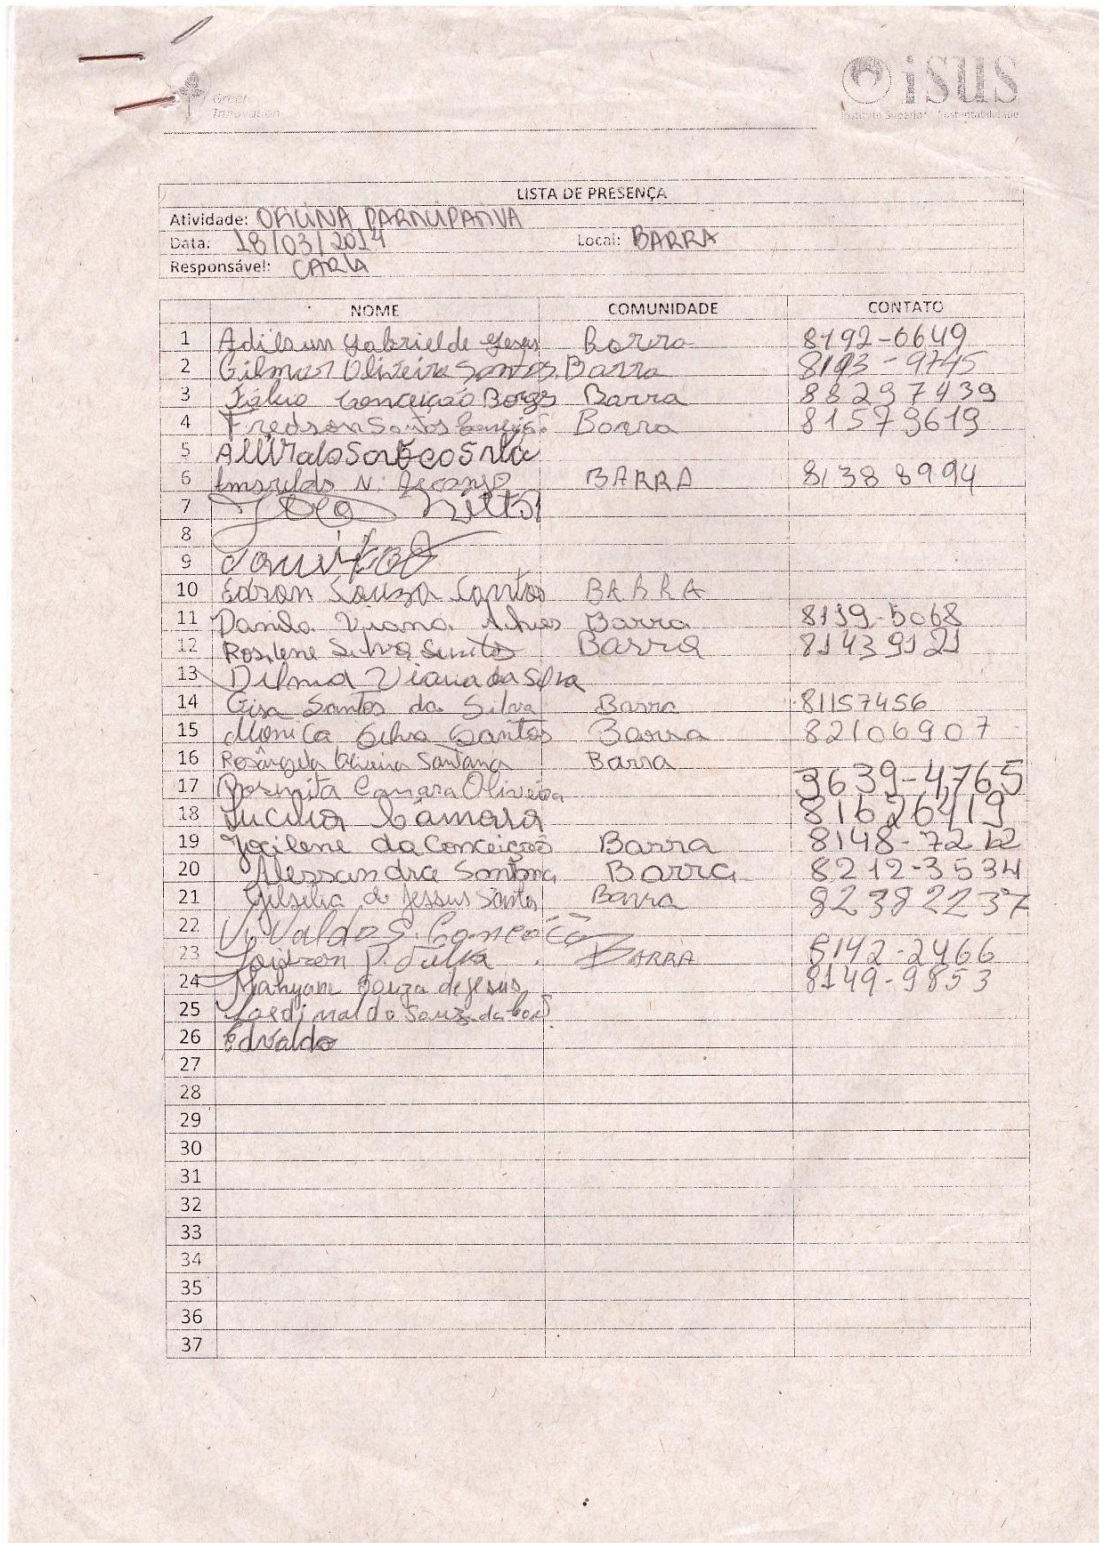 Green
Innovation
isus
Instituto Superior Sustentabilidade
LISTA DE PRESENÇA
Atividade: OFICINA PARTICIPATIVA
Data: 18/03/2014 Local: BARRA
Responsável: CARLA
NOME COMUNIDADE CONTATO
1 Adilson Gabriel de Jesus Barra 8192-0649
2 Gilmar Oliveira Santos Barra 8193-9745
3 Fábio Conceição Borges Barra 88297439
4 Fredson Santos Barra 81579619
5
6 N. BARRA 8138 8994
7
8
9
10 Edson Souza Santos BARRA
11 Danilo Viana Alves Barra 8119-5068
12 Rosilene Silva Santos Barra 81439121
13 Dilma Viana da Silva
14 Gisa Santos da Silva Barra 81157456
15 Monica Silva Santos Barra 82106907
16 Rosângela Oliveira Santana Barra
17 Rosenita Camara Oliveira 3639-4765
18 Lucilia Câmara 81626419
19 Jocilene da Conceição Barra 8148-7212
20 Alessandra Santana Barra 8212-3534
21 Gilselia de Jessus Santos Barra 82382237
22 Valdo S.
23 BARRA 8142-2466
24 Mahyam Souza de Jesus 8149-9853
25
26 Edvaldo
27
28
29
30
31
32
33
34
35
36
37